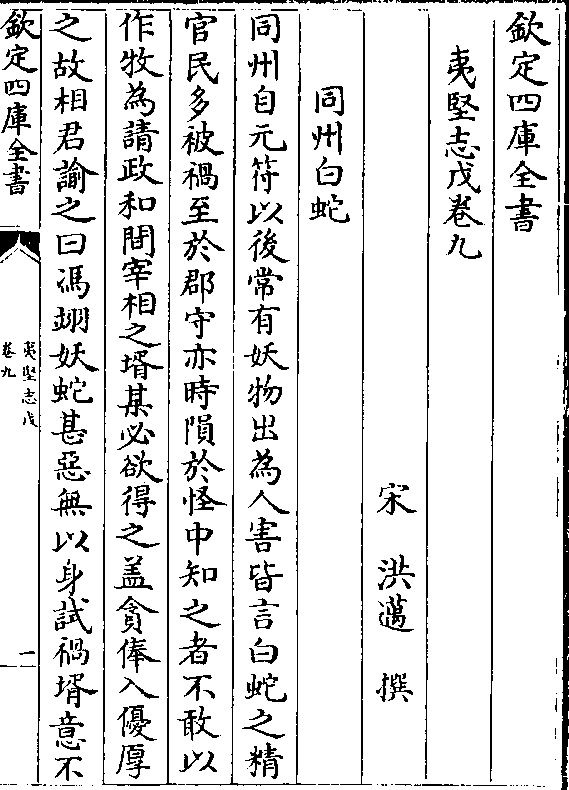 欽定四庫全書
夷堅志戊卷九
宋 洪邁 撰
同州白蛇
同州自元符以後常有妖物出為人害皆言白蛇之精
官民多被禍至於郡守亦時隕於怪中知之者不敢以
作牧為請政和間宰相之壻某必欲得之盖貪俸入優厚
之故相君諭之曰馮翊妖蛇甚惡無以身試禍壻意不
欽定四庫全書
夷堅志戊
卷九
一